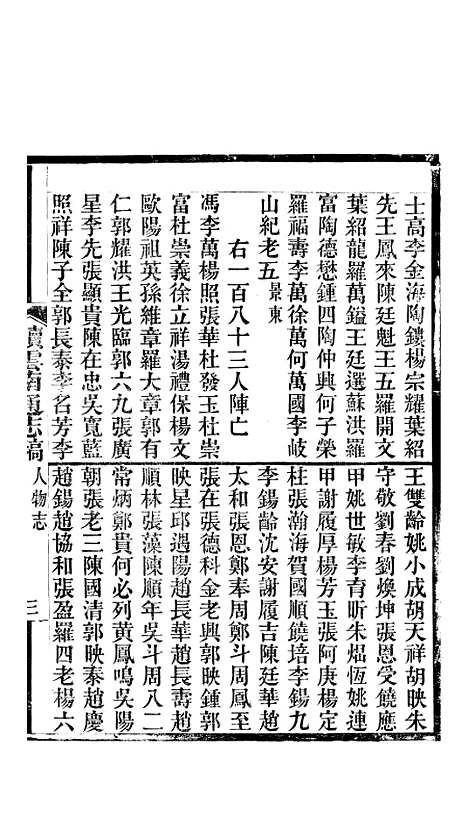 士高李金海陶鏤楊宗耀葉紹
先王鳳來陳廷魁王五羅開文
葉紹龍羅萬鎰王廷選蘇洪羅
富陶德懋鍾四陶仲興何子榮
羅福壽李萬徐萬何萬國李岐
山紀老五景東
右一百八十三人陣亡
馮李萬楊照張華杜發玉杜崇
富杜崇義徐立祥湯禮保楊文
歐陽祖英孫維章羅大章郭有
仁郭耀洪王光臨郭六九張廣
星李先張顯貴陳在忠吳寬藍
照祥陳子全郭長泰李名芳李
王雙齡姚小成胡天祥胡映朱
守敬劉春劉煥坤張恩受饒應
甲姚世敏李育昕朱焜恆姚連
甲謝履厚楊芳玉張阿庚楊定
柱張瀚海賀國順饒培李錫九
李錫齡沈安謝履吉陳廷華趙
太和張恩鄭奉周鄭斗周鳳至
張在張德科金老興郭映鍾郭
映星邱遇陽趙長華趙長壽趙
順林張藻陳順年吳斗周八二
常炳鄭貴何必列黃鳳鳴吳陽
朝張老三陳國清郭映泰趙慶
趙錫趙協和張盈羅四老楊六
續雲南通志稿
人物志
三